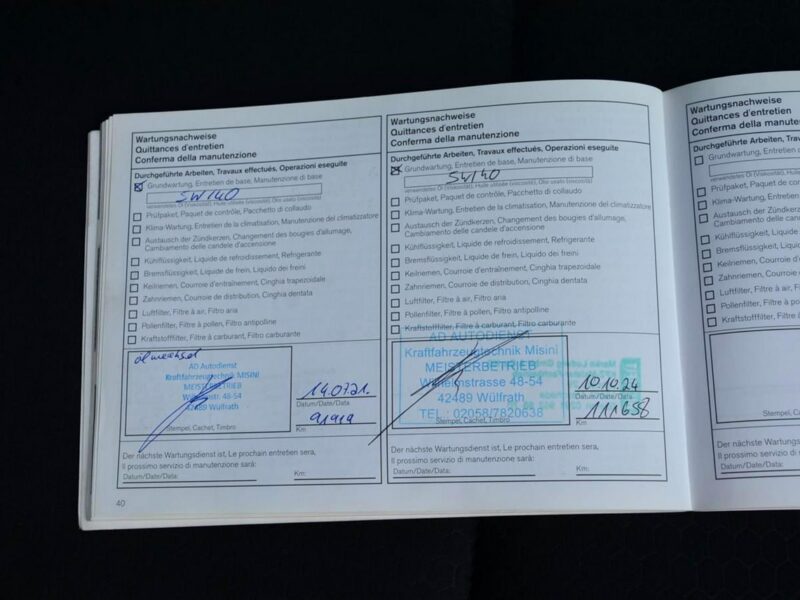 Wartungsnachweise
Quittances d'entretien
Conferma della manutenzione
Durchgeführte Arbeiten, Travaux effectués, Operazioni eseguite
Grundwartung, Entretien de base, Manutenzione di base
5W140
verwendetes Öl (Viskosität), Huile utilisée (viscosité), Olio usato (viscosità)
Prüfpaket, Paquet de contrôle, Pacchetto di collaudo
Klima-Wartung, Entretien de la climatisation, Manutenzione del climatizzatore
Austausch der Zündkerzen, Changement des bougies d'allumage,
Cambiamento delle candele d'accensione
Kühlflüssigkeit, Liquide de refroidissement, Refrigerante
Bremsflüssigkeit, Liquide de frein, Liquido dei freini
Keilriemen, Courroie d'entraînement, Cinghia trapezoidale
Zahnriemen, Courroie de distribution, Cinghia dentata
Luftfilter, Filtre à air, Filtro aria
Pollenfilter, Filtre à pollen, Filtro antipolline
Kraftstofffilter, Filtre à carburant, Filtro carburante
Ölwechsel
AD Autodienst
Kraftfahrzeugtechnik MISINI
MEISTERBETRIEB
Wilhelmstr. 48-54
42489 Wülfrath
Stempel, Cachet, Timbro
14.07.21.
Datum/Date/Data
91919
Km
Der nächste Wartungsdienst ist, Le prochain entretien sera,
Il prossimo servizio di manutenzione sarà:
Datum/Date/Data:
Km:
40
Wartungsnachweise
Quittances d'entretien
Conferma della manutenzione
Durchgeführte Arbeiten, Travaux effectués, Operazioni eseguite
Grundwartung, Entretien de base, Manutenzione di base
5W140
verwendetes Öl (Viskosität), Huile utilisée (viscosité), Olio usato (viscosità)
Prüfpaket, Paquet de contrôle, Pacchetto di collaudo
Klima-Wartung, Entretien de la climatisation, Manutenzione del climatizzatore
Austausch der Zündkerzen, Changement des bougies d'allumage,
Cambiamento delle candele d'accensione
Kühlflüssigkeit, Liquide de refroidissement, Refrigerante
Bremsflüssigkeit, Liquide de frein, Liquido dei freini
Keilriemen, Courroie d'entraînement, Cinghia trapezoidale
Zahnriemen, Courroie de distribution, Cinghia dentata
Luftfilter, Filtre à air, Filtro aria
Pollenfilter, Filtre à pollen, Filtro antipolline
Kraftstofffilter, Filtre à carburant, Filtro carburante
AD AUTODIENST
Kraftfahrzeugtechnik Misini
MEISTERBETRIEB
Wilhelmstrasse 48-54
42489 Wülfrath
TEL.: 02058/7820638
Stempel, Cachet, Timbro
10.10.24
Datum/Date/Data
111658
Km
Der nächste Wartungsdienst ist, Le prochain entretien sera,
Il prossimo servizio di manutenzione sarà:
Datum/Date/Data:
Km:
Wartungsnachweise
Quittances d'entretien
Conferma della manutenzione
Durchgeführte Arbeiten, Travaux
Grundwartung, Entretien de
verwendetes Öl (Viskosität), Huile
Prüfpaket, Paquet de cont
Klima-Wartung, Entretien
Austausch der Zündkerze
Cambiamento delle cand
Kühlflüssigkeit, Liquide
Bremsflüssigkeit, Liqu
Keilriemen, Courroie d
Zahnriemen, Courroie
Luftfilter, Filtre à air, F
Pollenfilter, Filtre à p
Kraftstofffilter, Filtre
Stempel,
Der nächste Wartungs
Il prossimo servizio di
Datum/Date/Data: